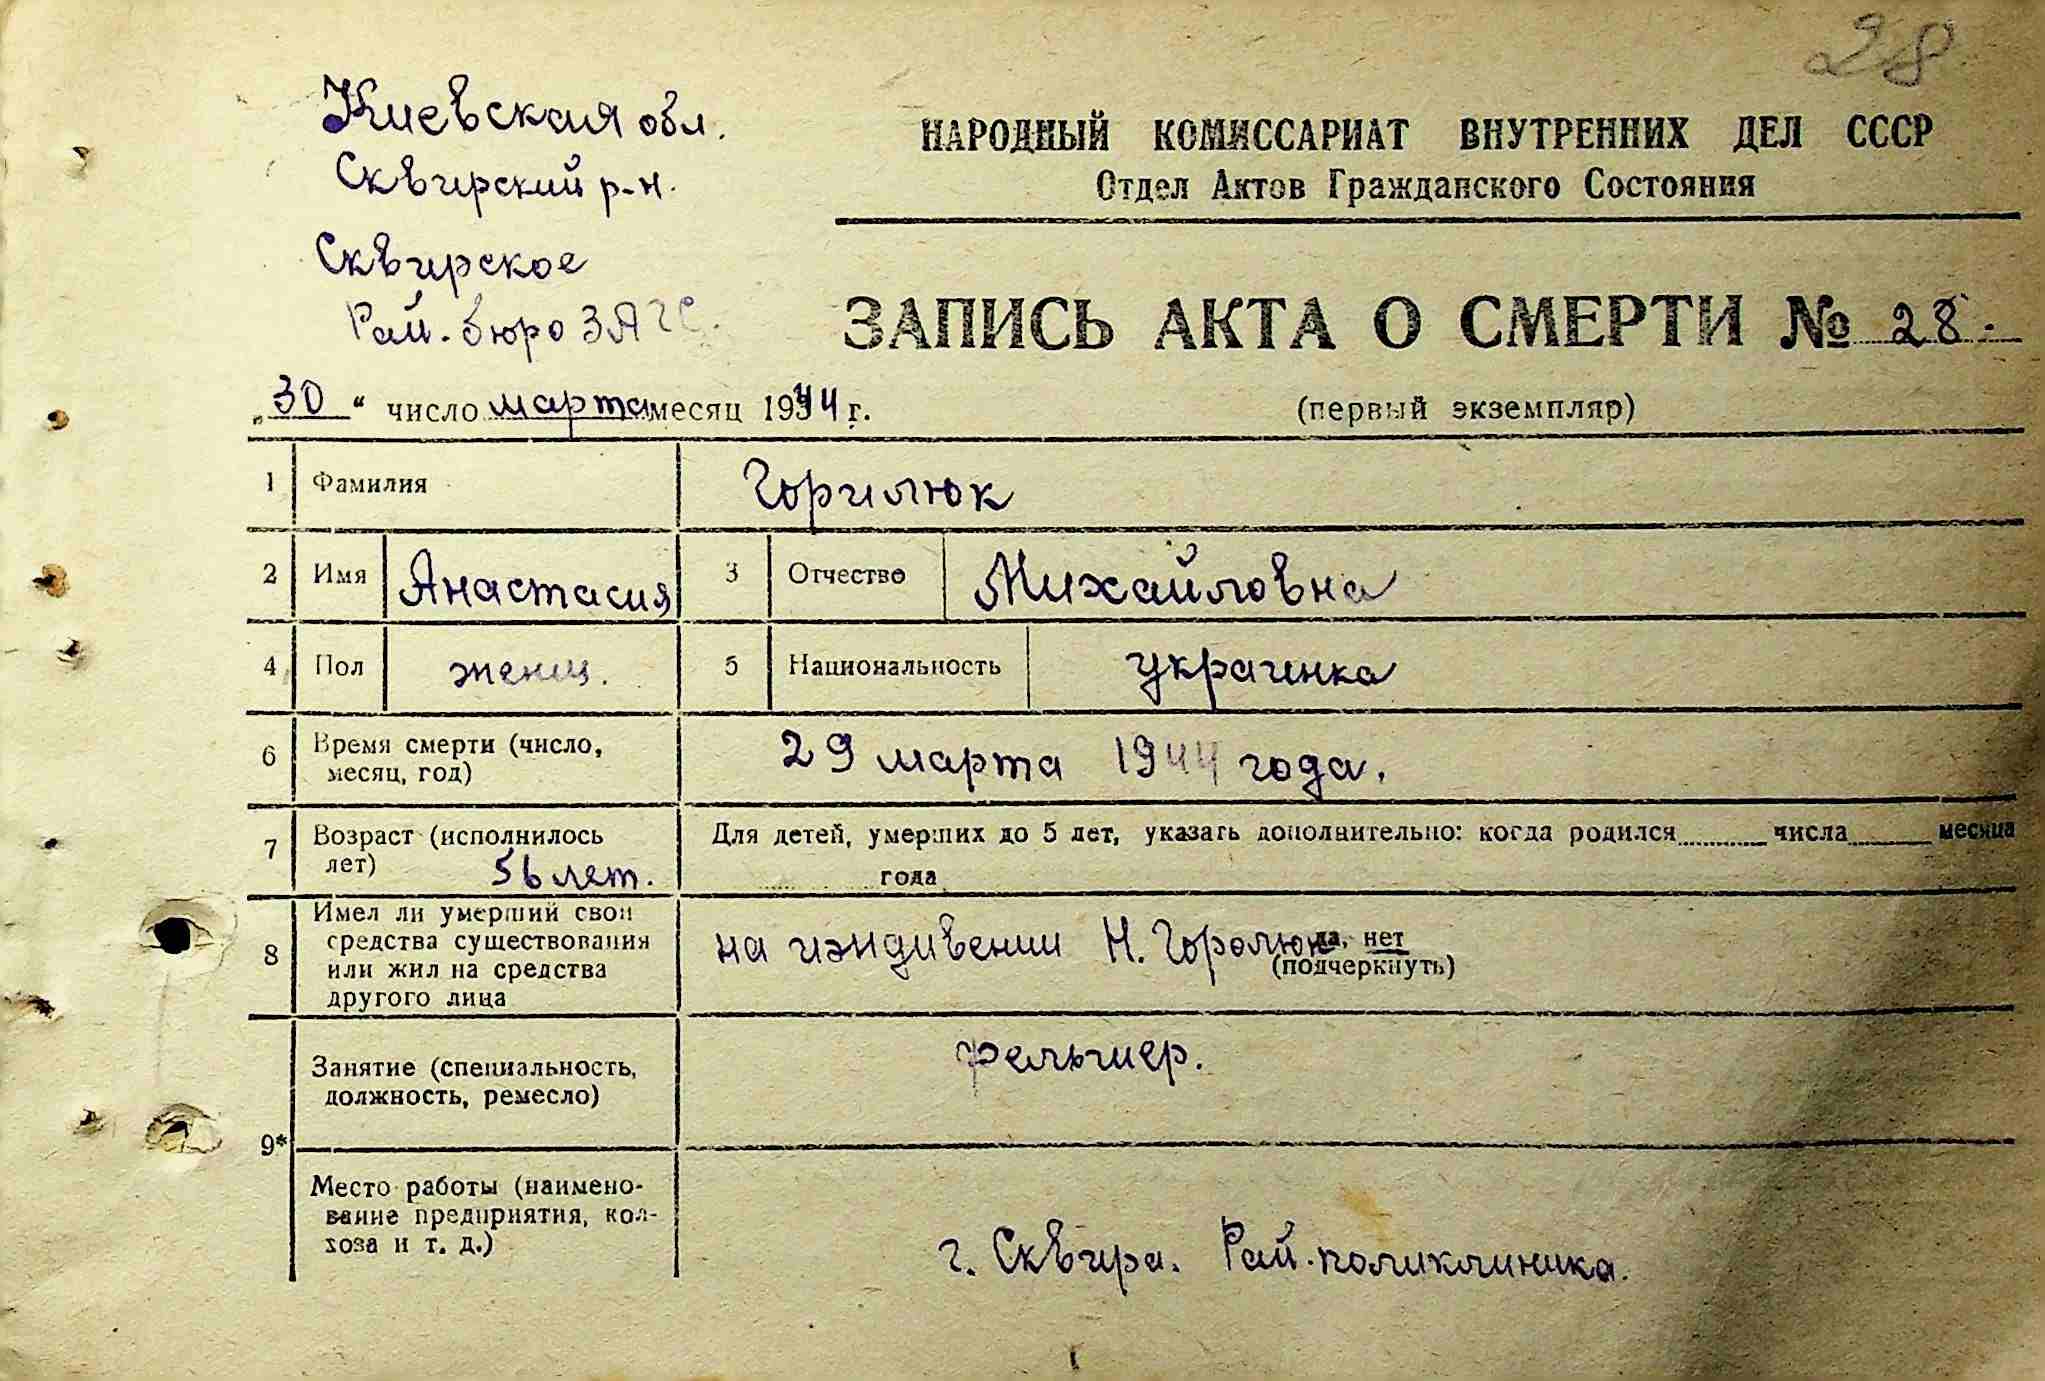 28
Киевская обл.
Сквирский р-н.
Сквирское
Рай. бюро ЗАГС.
НАРОДНЫЙ КОМИССАРИАТ ВНУТРЕННИХ ДЕЛ СССР
Отдел Актов Гражданского Состояния
ЗАПИСЬ АКТА О СМЕРТИ № 28.
„30“ число марта месяц 1944 г.
(первый экземпляр)
1 Фамилия Горилюк
2 Имя Анастасия 3 Отчество Михайловна
4 Пол женщ. 5 Национальность украинка
6 Время смерти (число,
месяц, год) 29 марта 1944 года.
7 Возраст (исполнилось
лет) 56 лет.
Для детей, умерших до 5 лет, указать дополнительно: когда родился числа месяца
года
8 Имел ли умерший свои
средства существования
или жил на средства
другого лица
на иждивении Н. Горолюк да, нет
(подчеркнуть)
9* Занятие (специальность,
должность, ремесло)
фельшер.
Место работы (наимено-
вание предприятия, кол-
хоза и т. д.)
г. Сквира. Рай. поликлиника.